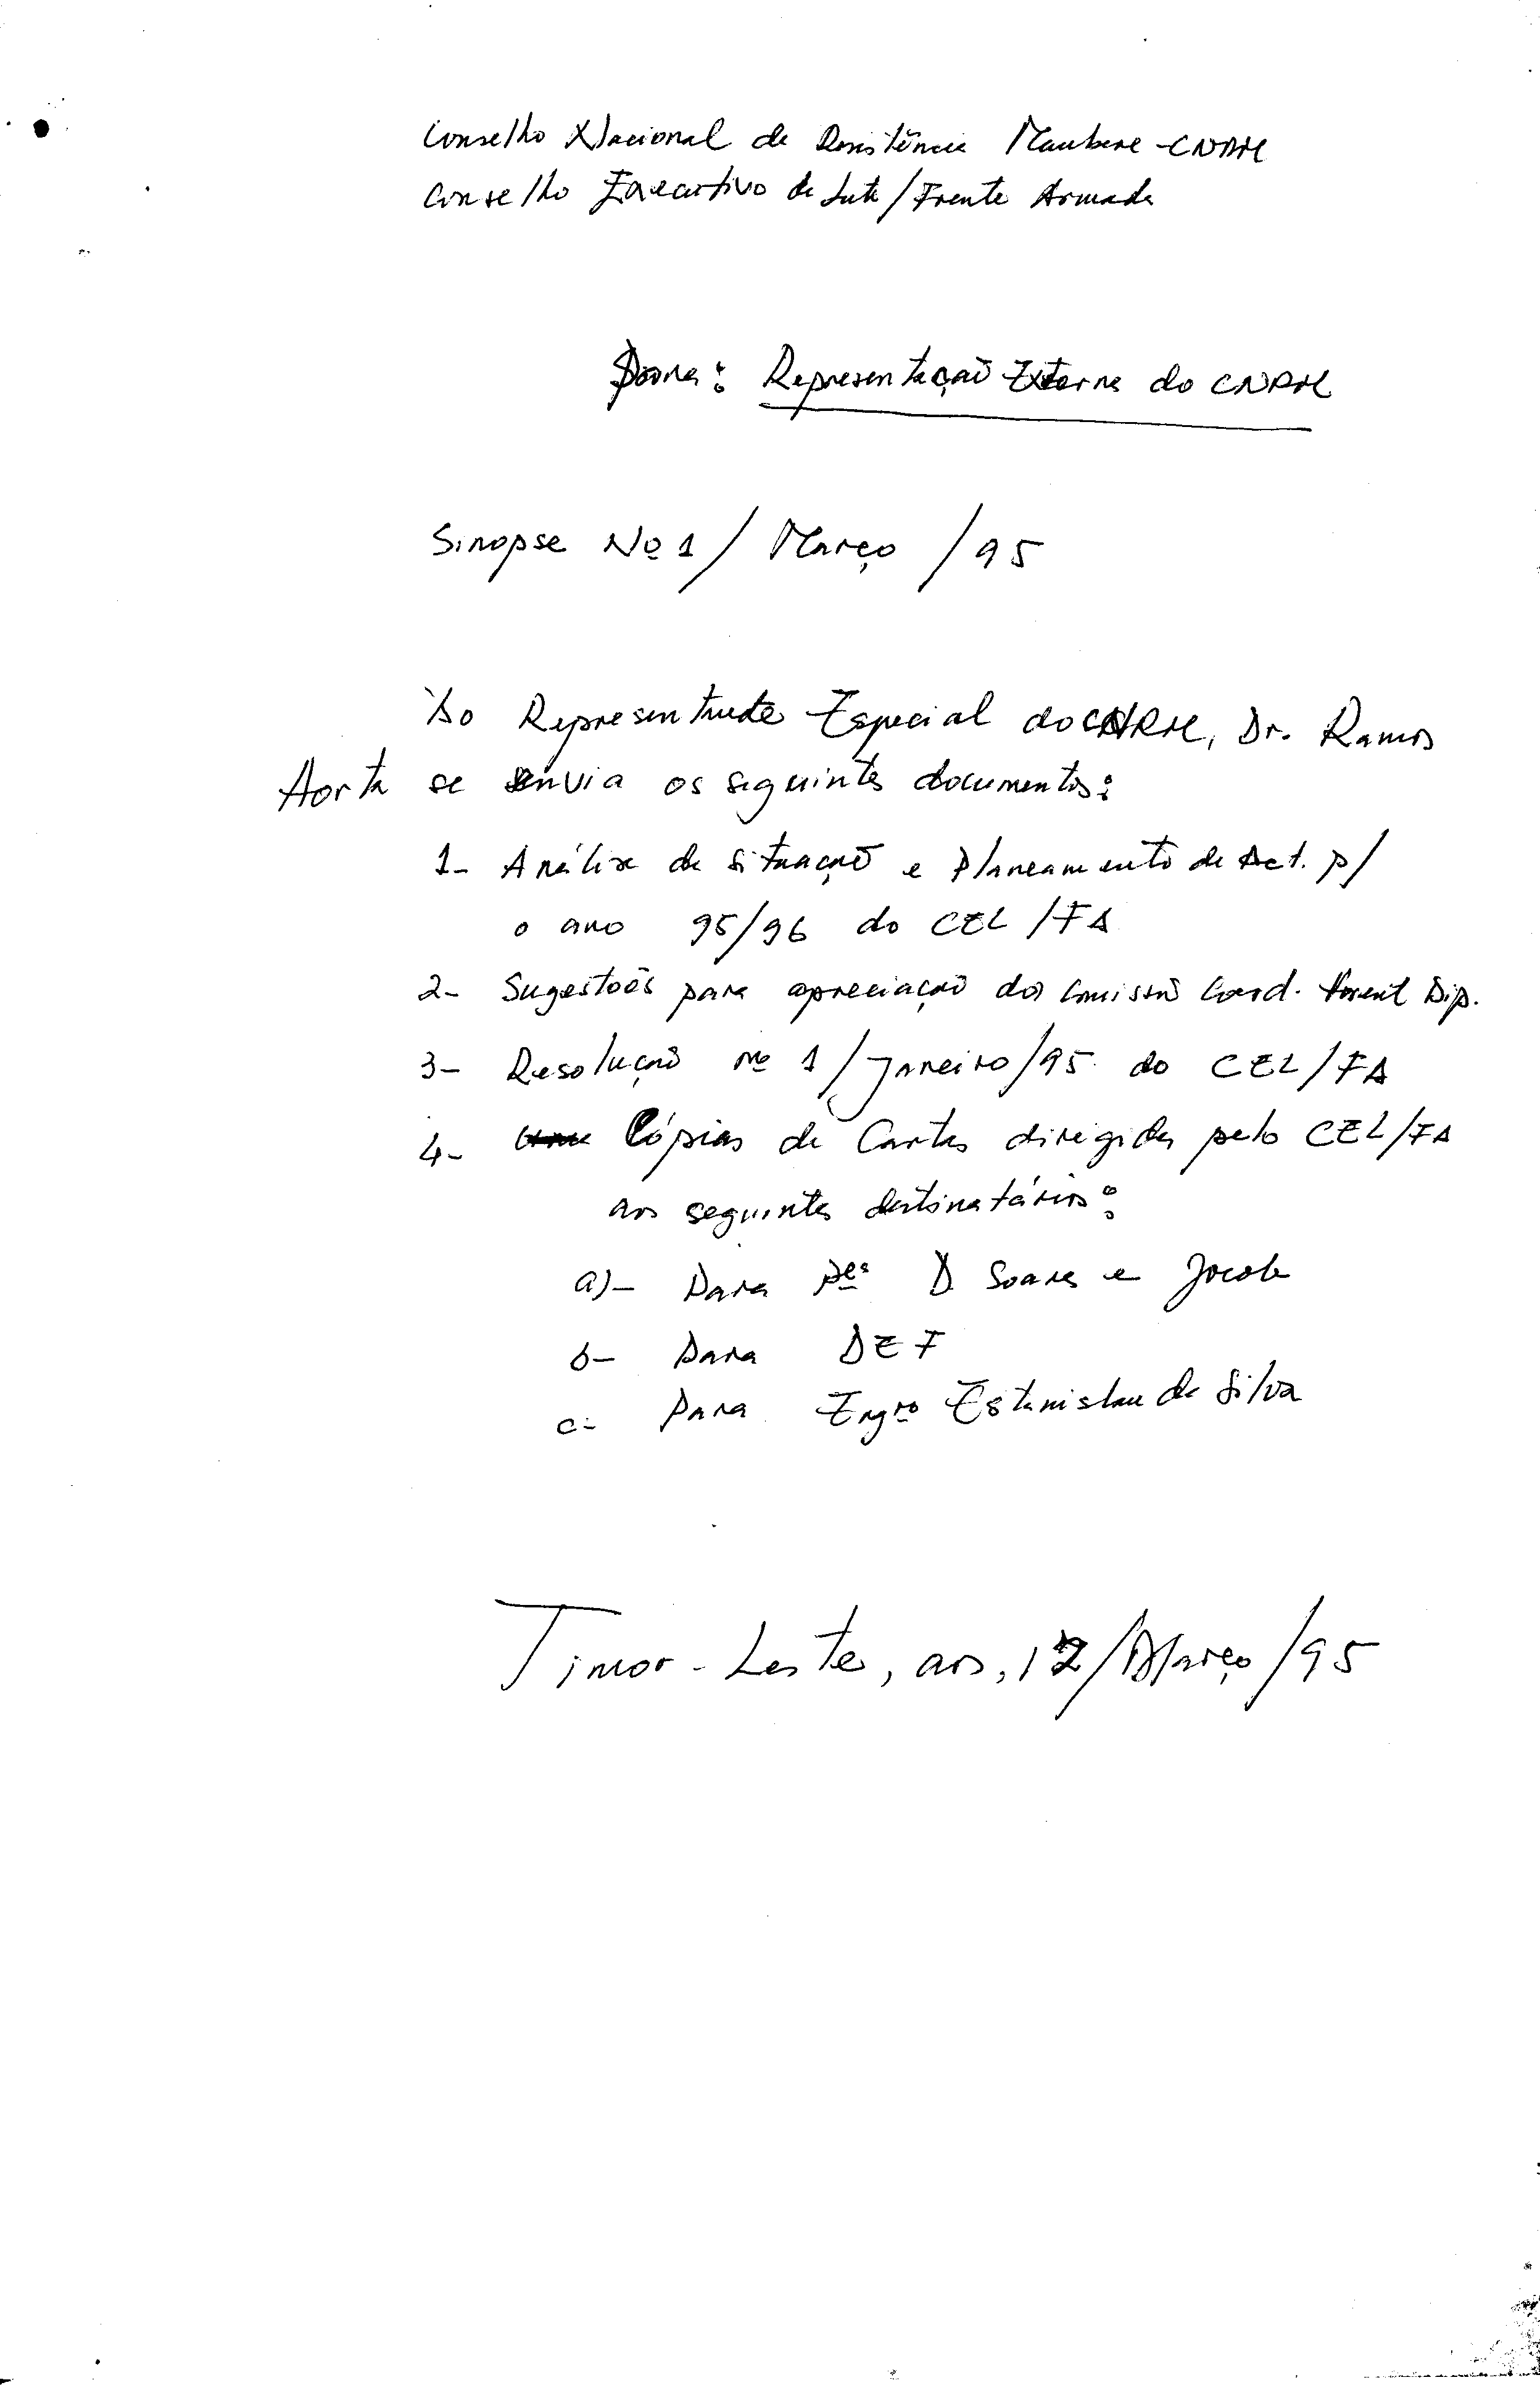 Conselho Nacional de Resistência Maubere - CNRM
Conselho Executivo de Luta / Frente Armada
Para: Representação Externa do CNRM
Sinopse Nº 1 / Março / 95
Ao Representante Especial do CNRM, Dr. Ramos
Horta se envia os seguintes documentos:
1- Análise da situação e Planeamento de Act. p/
o ano 95/96 do CEL / FA
2- Sugestões para apreciação da Comissão Coord. Dip.
3- Resolução nº 1 / Janeiro / 95 do CEL / FA
4- Cópias de Cartas dirigidas pelo CEL / FA
aos seguintes destinatários:
a)- Para Pes D Soares e Jacob
b- Para DEF
c- Para Engro Estanislau da Silva
Timor-Leste, aos, 12 / Março / 95